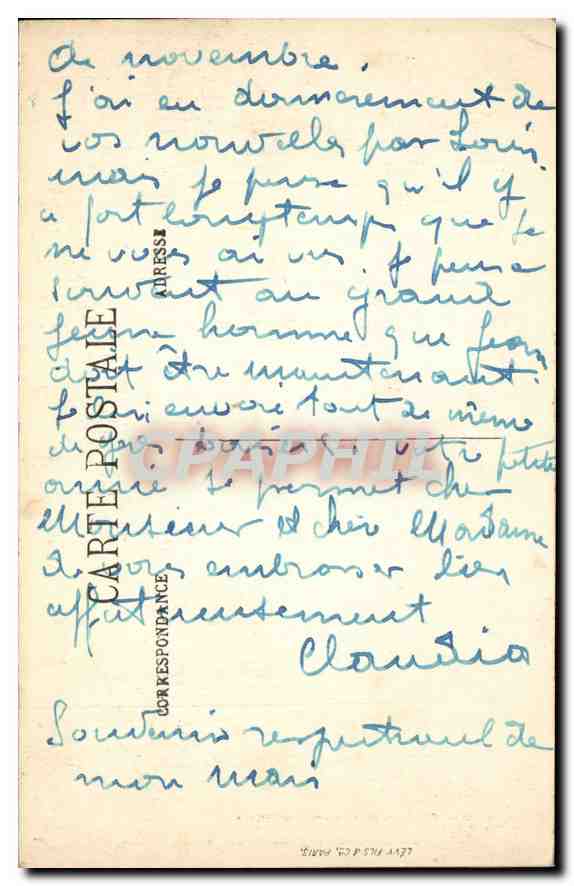 de novembre.
J'ai eu dernièrement de
vos nouvelles par Louis.
mais je pense qu'il y
a fort longtemps que je
ne vous ai vus je pense
souvent au grand
jeune homme que Jean
doit être maintenant.
Je lui envoie tout de même
de gros baisers votre petite
amie se permet cher
Monsieur et chère Madame
de vous embrasser bien
affectueusement
Claudia
Souvenir respectueux de
mon mari
CARTE POSTALE
CORRESPONDANCE
ADRESSE
CPAPHIL
LÉVY FILS & Co, PARIS.